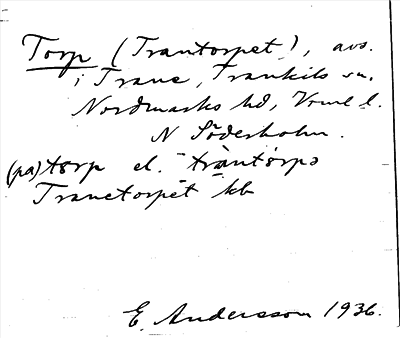 Torp (Trantorpet), avs.
i Trane, Trankils sn.
Nordmarks hd, Vrml l.
N Söderholm.
(pa) torp el. tràntórpə
Tranetorpet kb
E. Andersson 1936.